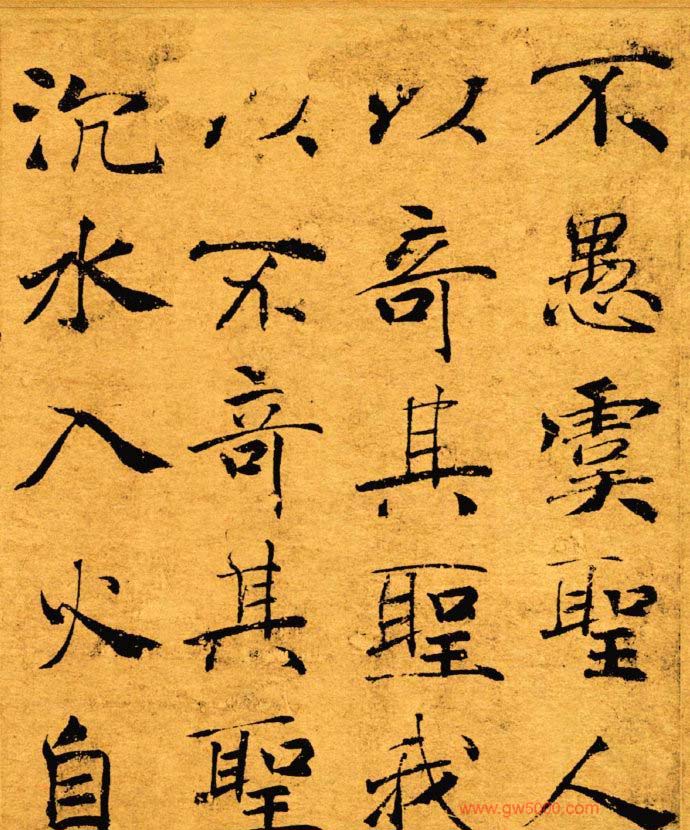 不愚虞聖人
以竒其聖我
以不竒其聖
沉水入火自
www.gw5000.com